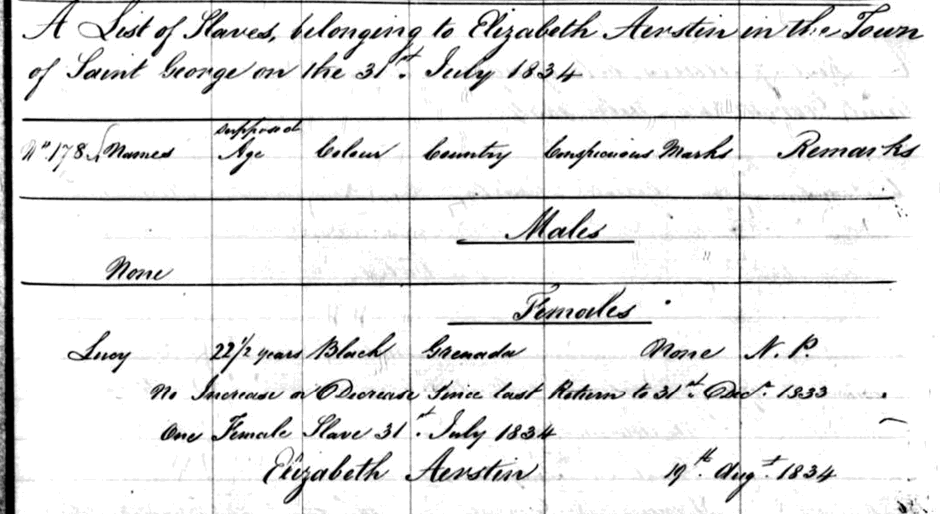 A List of Slaves, belonging to Elizabeth Aerstin in the Town
of Saint George on the 31st. July 1834
No. 178 Names supposed Age Colour Country Conspicuous Marks Remarks
Males
None
Females
Lucy 22 1/2 years Black Grenada None N. P.
No Increase or Decrease Since last Return to 31st. Decr. 1833
One Female Slave 31st. July 1834
Elizabeth Aerstin 19th Augt. 1834